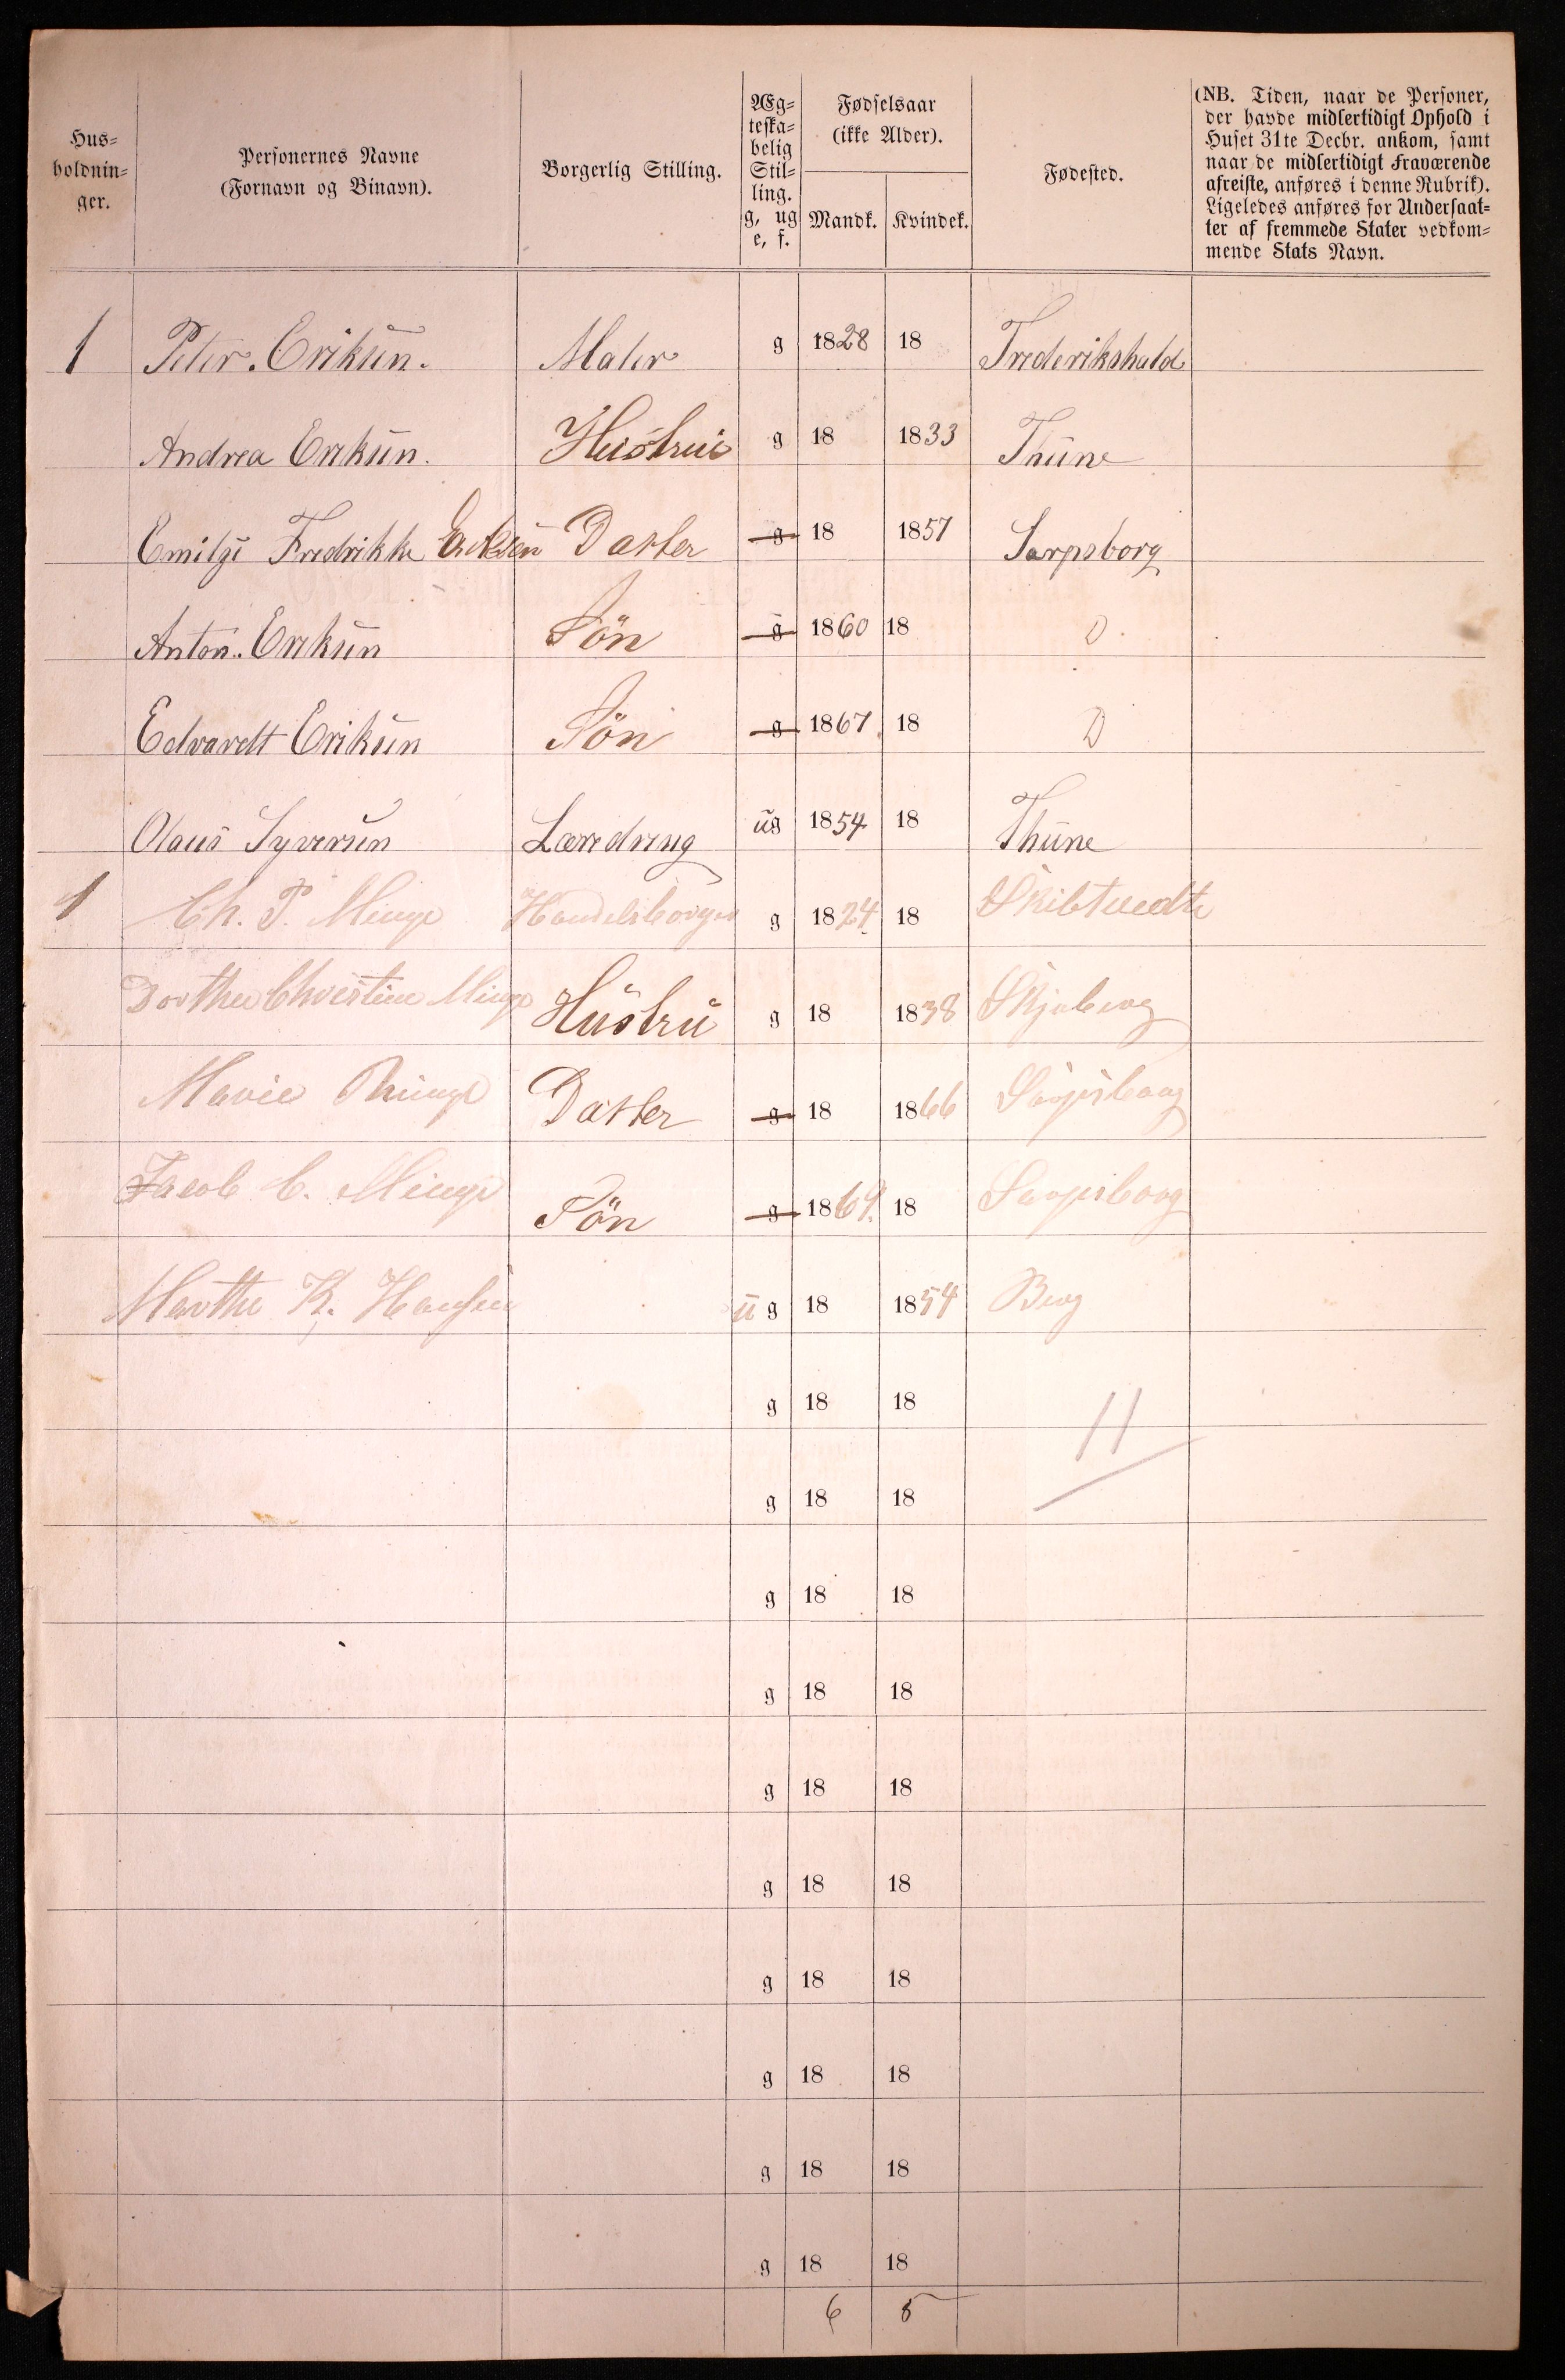 Hus-
holdnin-
ger.
Personernes Navne
(Fornavn og Binavn).
Borgerlig Stilling.
Æg-
teska-
belig
Stil-
ling.
g, ug
e, f.
Fødselsaar
(ikke Alder).
Mandk. Kvindek.
Fødested.
(NB. Tiden, naar de Personer,
der havde midlertidigt Ophold i
Huset 31te Decbr. ankom, samt
naar de midlertidigt Fraværende
afreiste, anføres i denne Rubrik).
Ligeledes anføres for Undersaat-
ter af fremmede Stater vedkom-
mende Stats Navn.
1 Peter. Eriksen. Maler g 1828 18 Frederikshald
Andrea Eriksen. Hustrue g 18 1833 Thune
Emilie Fredrikke Eriksen Datter g 18 1857 Sarpsborg
Anton. Eriksen Sön g 1860 18 D.
Edvardt Eriksen Sön g 1867 18 D
Olaus Syversen Læredreng ug 1854 18 Thune
1 Ch. P. Minge Handelsborger g 1824 18
Dorthea Christine Minge Hustru g 18 1838 Skjeberg
Marie Minge Datter g 18 1866 Sarpsborg
Jacob C. Minge Sön g 1869. 18 Sarpsborg
Marthe K. Hansen ug 18 1854 Berg
g 18 18
11
g 18 18
g 18 18
g 18 18
g 18 18
g 18 18
g 18 18
g 18 18
g 18 18
g 18 18
6 5